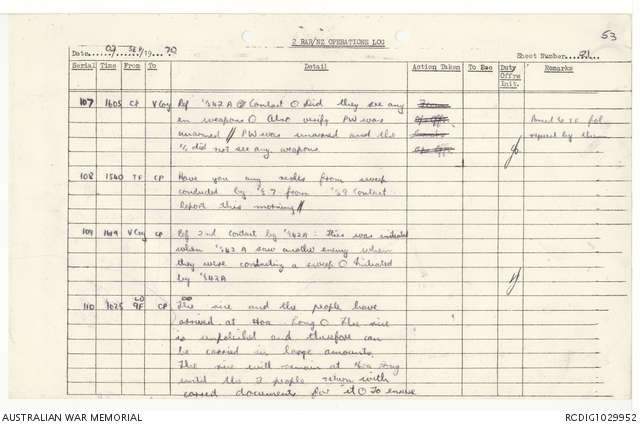 53
2 RAR/NZ OPERATIONS LOG
Date 07 SEP 19 70
Sheet Number 21
Serial Time From To Detail Action Taken To Bde Duty Offrs Init. Remarks
107 1605 CP V Coy Ref /S42A @ Contact O Did they see any
en weapons O Also verify PW was
unarmed // PW was unarmed and the
did not see any weapons
108 1540 TF CP Have you any results from sweep
conducted by from Contact
Report this morning //
109 1619 V Coy CP Ref 2nd Contact by S42A: This was initiated
when S42A saw another enemy when
they were conducting a sweep O Initiated
by S42A
110 1625 LO CP The rice and the people have
arrived at Hoa Long O The rice
is unpolished and therefore can
be carried in large amounts.
The rice will remain at Hoa Long
until the 3 people return with
correct documents for it O To ensure
AUSTRALIAN WAR MEMORIAL
RCDIG1029952